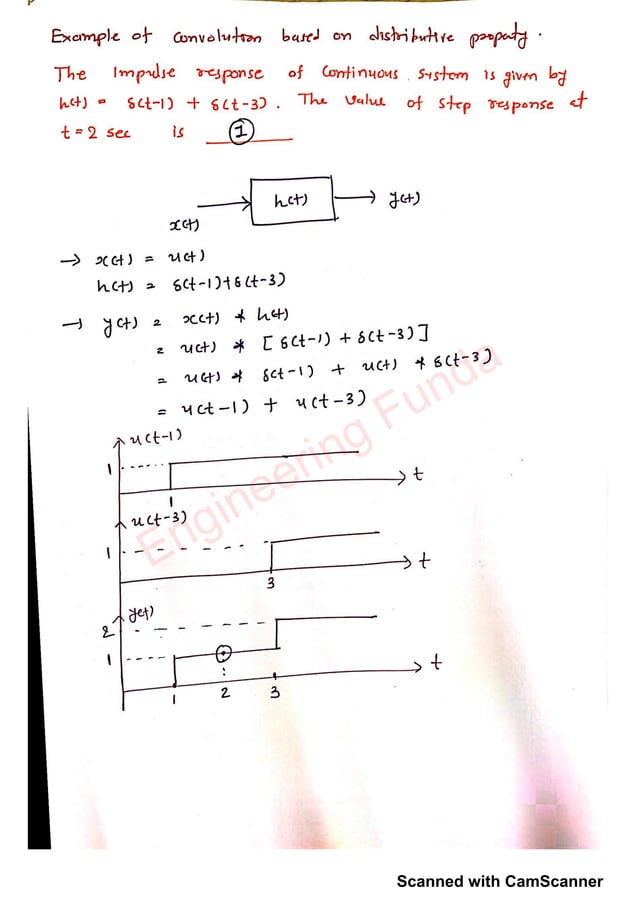 Example of convolution based on distributive property.
The Impulse response of Continuous system is given by
h(t) = δ(t-1) + δ(t-3). The value of step response at
t = 2 sec is 1
h(t)
y(t)
x(t)
→ x(t) = u(t)
h(t) = δ(t-1)+δ(t-3)
→ y(t) = x(t) * h(t)
= u(t) * [δ(t-1) + δ(t-3)]
= u(t) * δ(t-1) + u(t) * δ(t-3)
= u(t-1) + u(t-3)
u(t-1)
1
t
1
u(t-3)
1
t
3
y(t)
2
1
t
1 2 3
Engineering Funda
Scanned with CamScanner